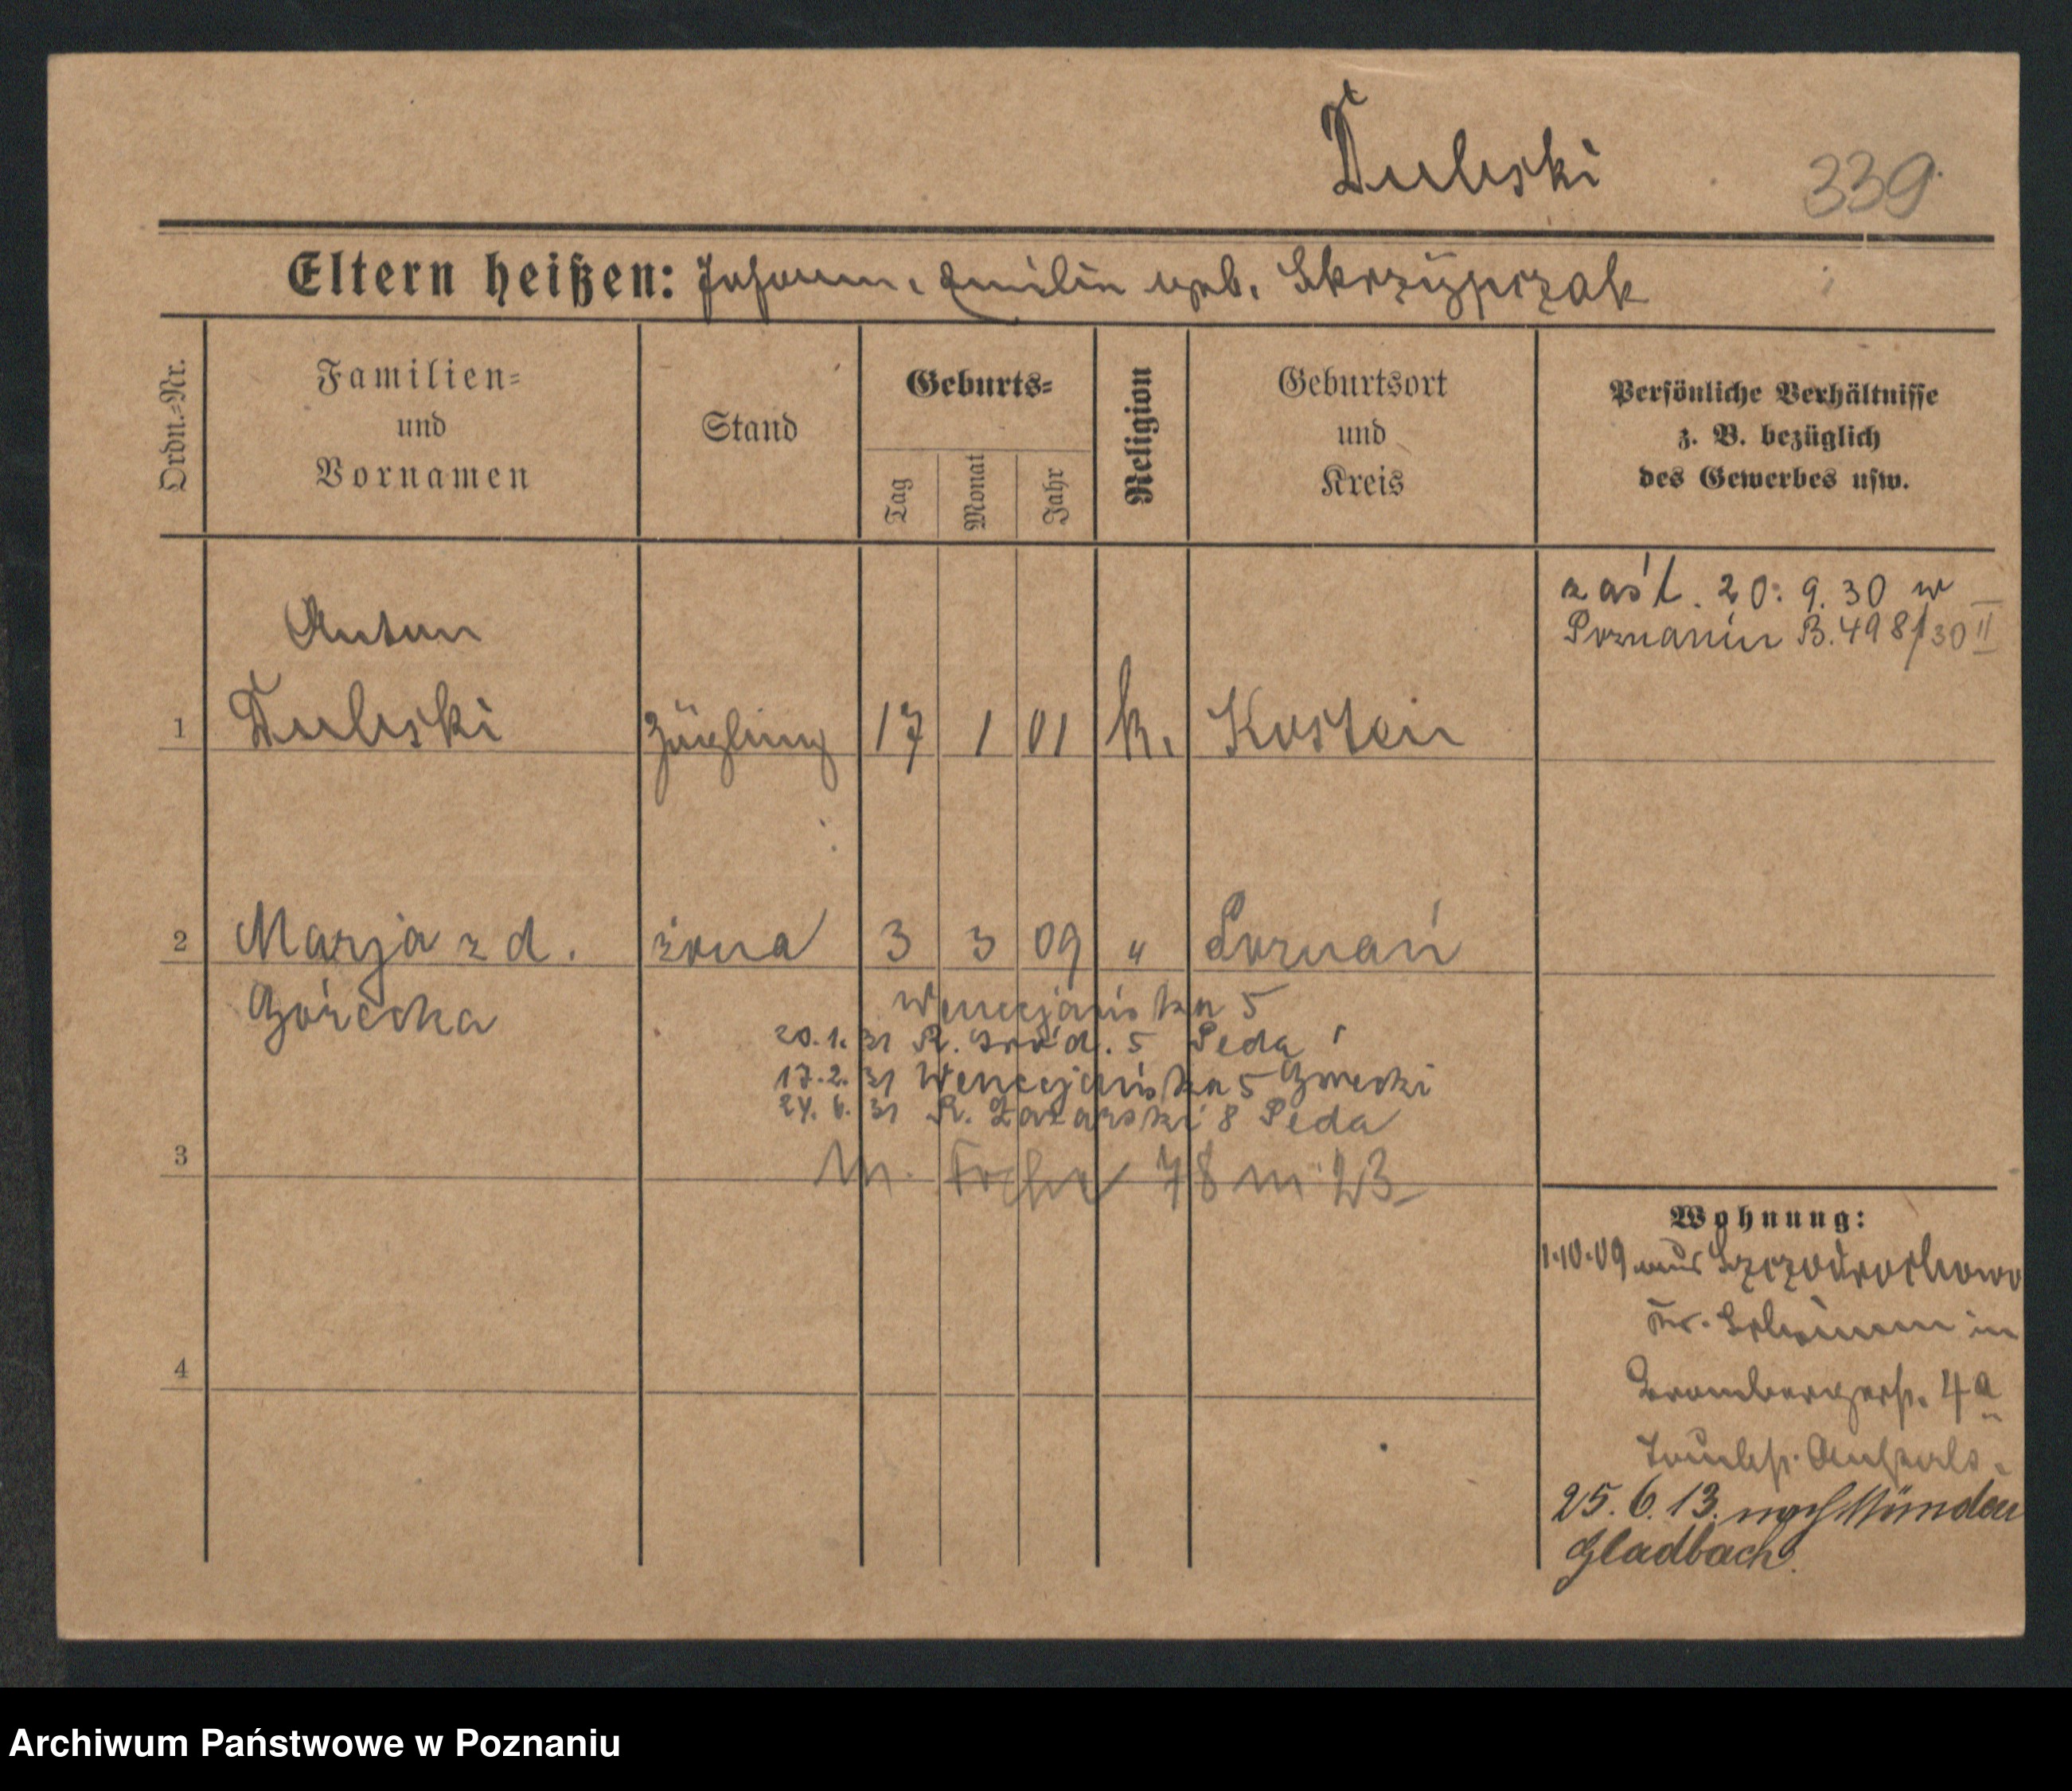 Dulski
339
Eltern heißen: Johann, Emilie geb. Skrzypczak
Ordn.=Nr.
Familien=
und
Vornamen
Stand
Geburts=
Tag
Monat
Jahr
Religion
Geburtsort
und
Kreis
Persönliche Verhältnisse
z. B. bezüglich
des Gewerbes usw.
zaśl. 20. 9. 30 w
Poznaniu B. 498/30 II
Anton
1 Dulski Zögling 17 1 01 k. Kosten
2 Marja z d. żona 3 3 09 " Poznań
Górecka
Wenecjańska 5
20. 1. 31 R. Śród. 5 Peda
17. 2. 31 Wenecjańska 5 Górecki
24. 6. 31 R. Łazarski 8 Peda
3
M. Focha 78 m 23
Wohnung:
1.10.09 aus
Kr. Schrimm in
Brombergerstr. 4a
Taubst. Anstalt.
4
25. 6. 13. nach München
Gladbach.